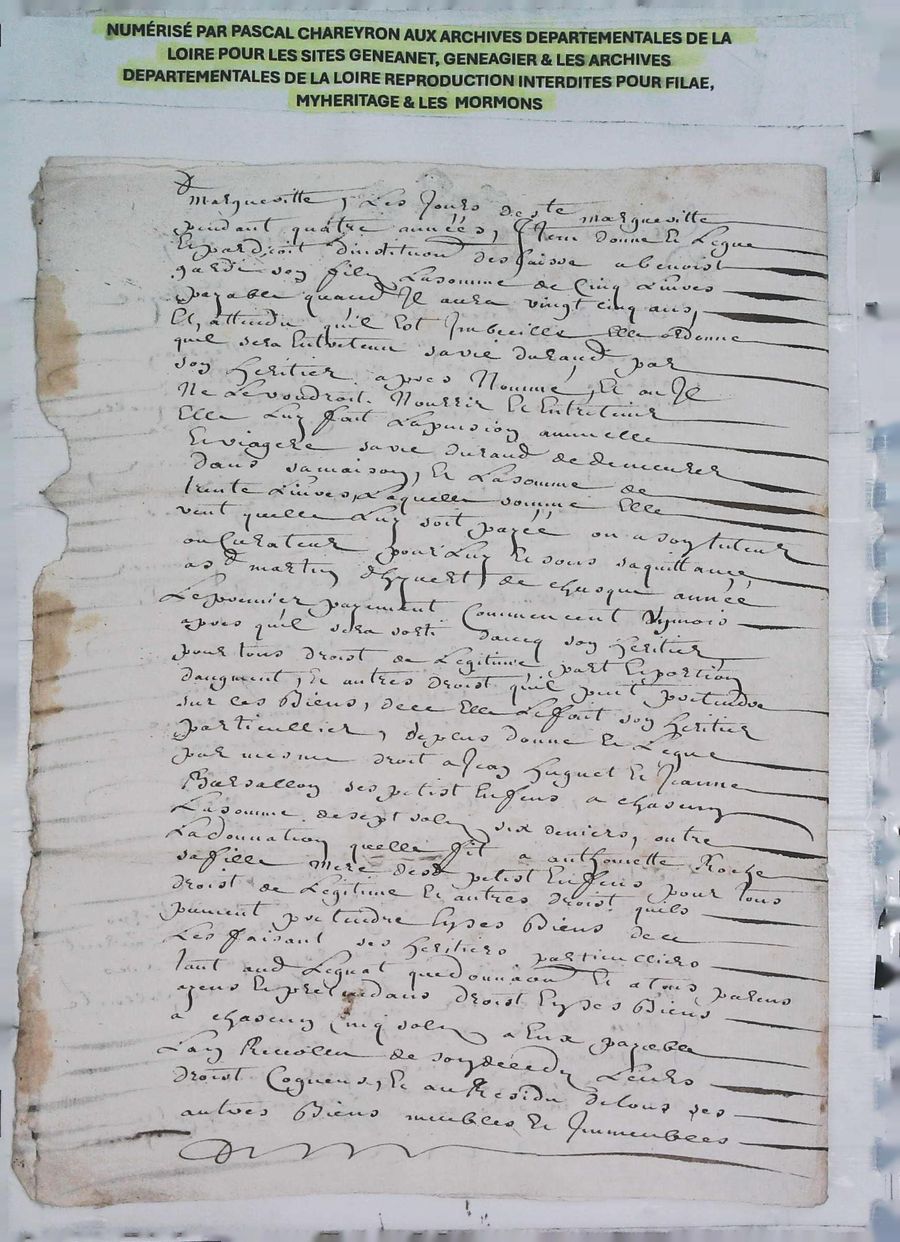 NUMÉRISÉ PAR PASCAL CHAREYRON AUX ARCHIVES DEPARTEMENTALES DE LA
LOIRE POUR LES SITES GENEANET, GENEAGIER & LES ARCHIVES
DEPARTEMENTALES DE LA LOIRE REPRODUCTION INTERDITES POUR FILAE,
MYHERITAGE & LES MORMONS
margueritte, Les Jours de ste margueritte
pendant quatre années, Item donne Et Legue
Et par droit dinstitution delaisse a benoist
son filz Lasomme de Cinq Livres
payable quand Il aura vingt cinq ans,
Et, attendu qu'il Est Imbecille Elle ordonne
quil sera Entretenu sa vie durand par
son heritier apres Nommé, Et ou Il
Ne Le voudroit Nourrir Et Entretenir
Elle Luy fait Lapension annuelle
Et viagere sa vie durand de demeurer
dans samaison, Et Lasomme de
trente Livres, Laquelle somme Elle
veut quelle Luy soit payée ou a son tuteur
ou Curateur pour Luy Et sous saquittance
a st martin d'hyvert de chasque année
Le premier payement Commencent
apres qu'il sera sorti davec son heritier
pour tous droit de Legitime part Et portion
daugment, Et autres droist qu'il peut pretendre
sur ses Biens, de ce Elle Le fait son heritier
particullier, de plus donne Et Legue
par mesme droit a Jean huguet Et Jeanne
ses petist Enfens a chascun
Lasomme de sept solz six deniers, outre
La donnation quelle fit a anthoinette Roche
safille mere desd petist Enfens pour tous
droist de Legitime Et autres droist quils
peuvent pretendre Es ses Biens de ce
Les faisant ses heritiers particulliers
tant aud Legnat que donnaon Et a tous parens
ayens Et pretendans droist Es ses Biens
a chascun Cinq solz a Eux payable
Lan Revollu de son deced Leurs
droist Cogneus, Et au Residu de tous ses
autres Biens meubles Et Immeubles